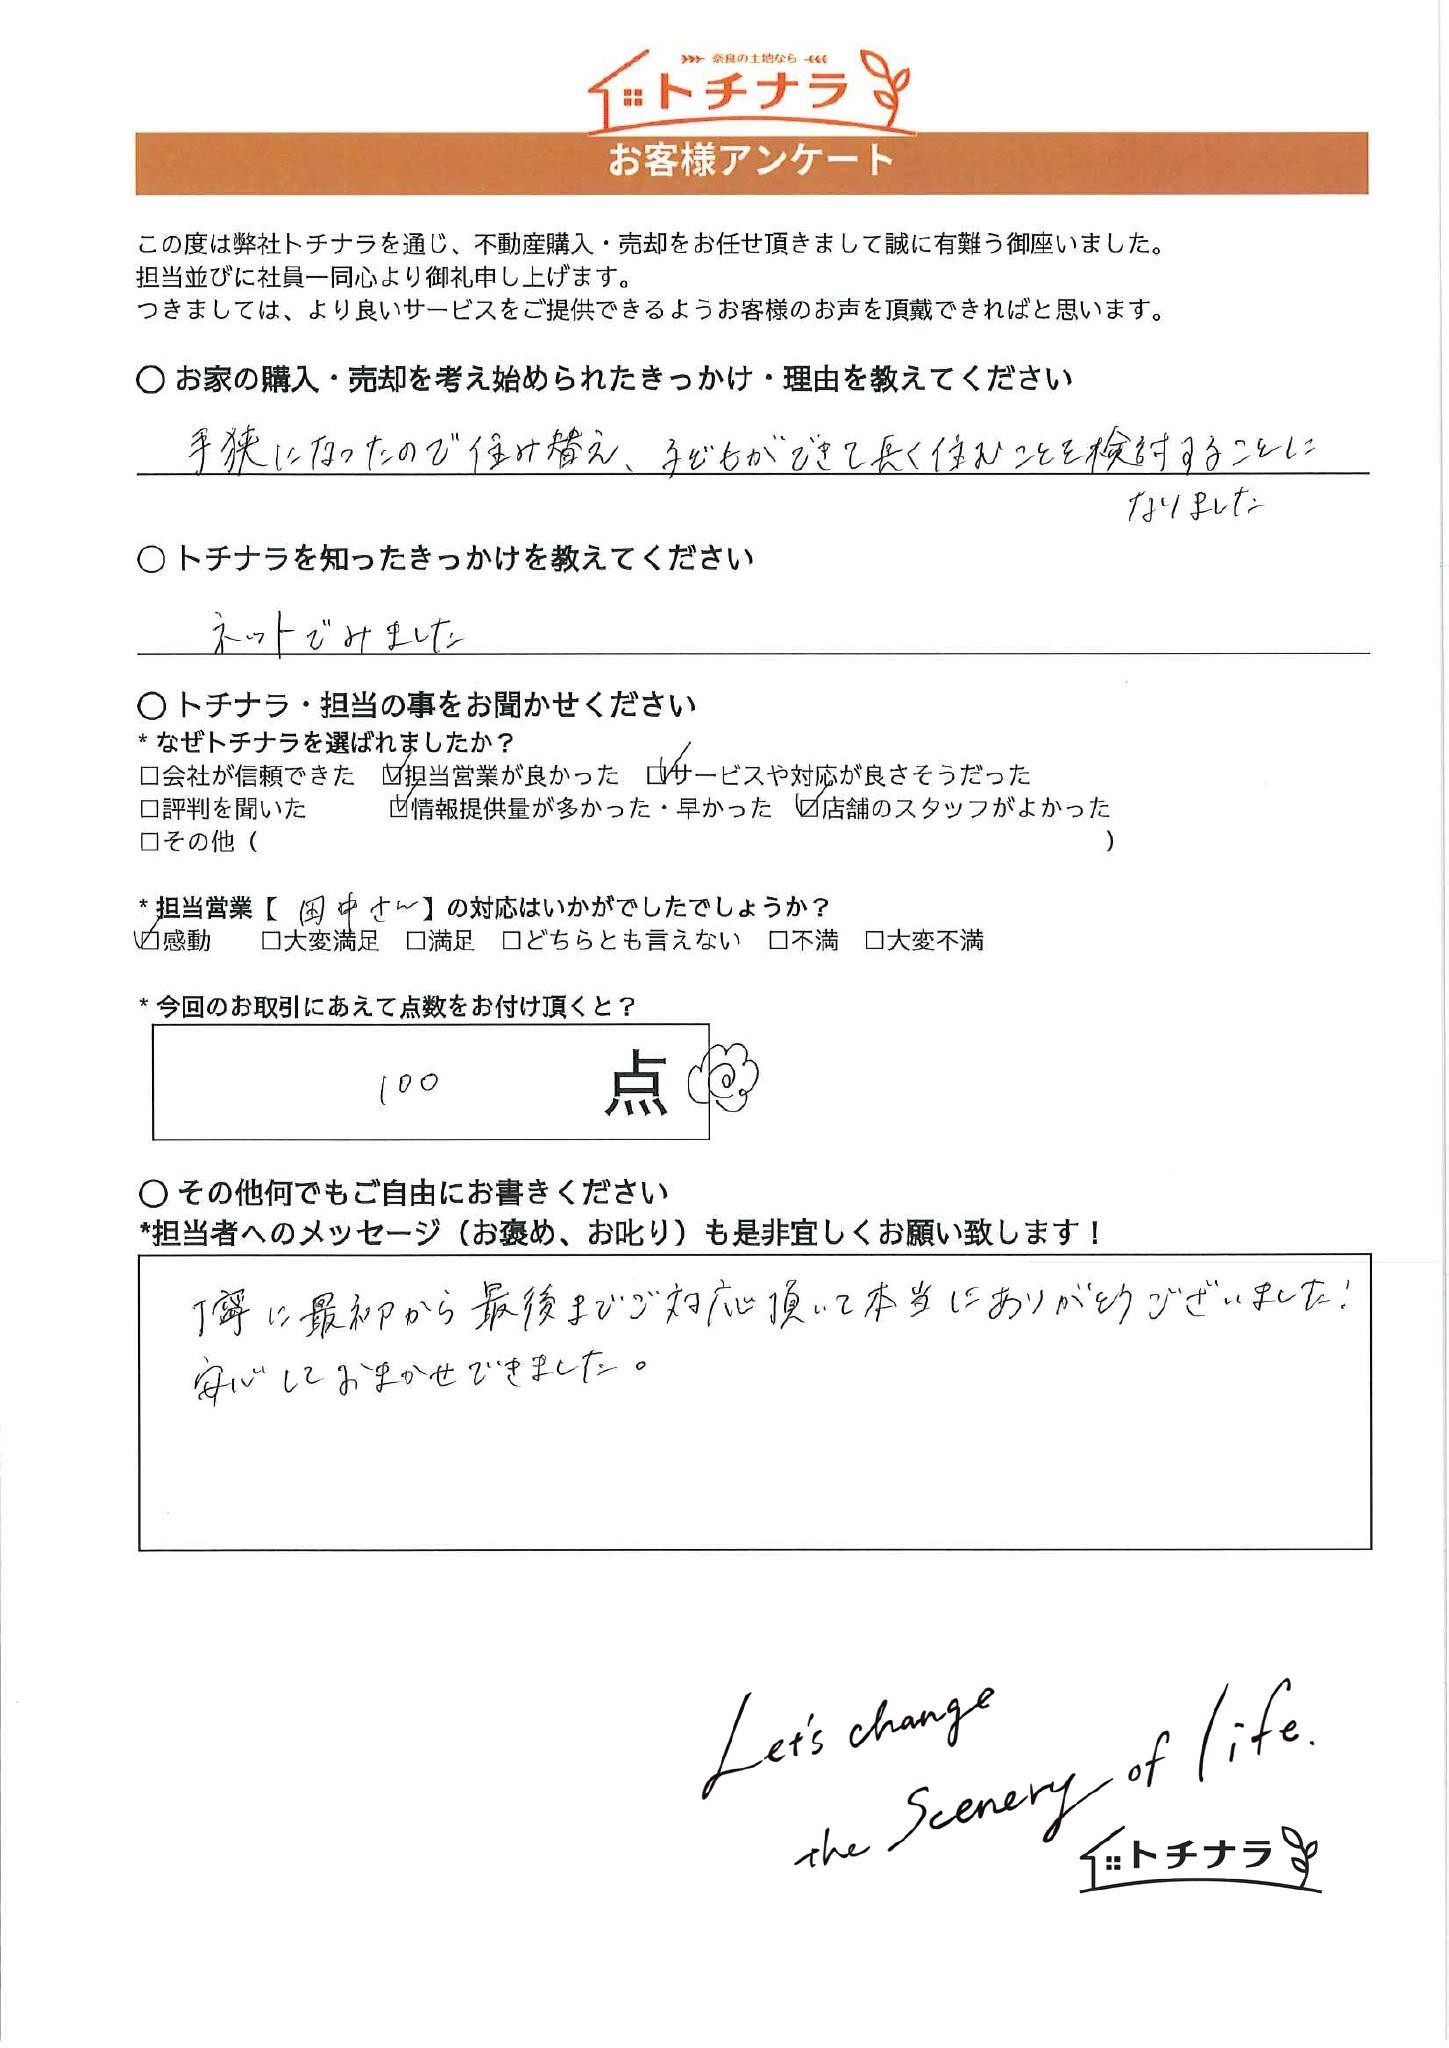 奈良の土地なら
トチナラ
お客様アンケート
この度は弊社トチナラを通じ、不動産購入・売却をお任せ頂きまして誠に有難う御座いました。
担当並びに社員一同心より御礼申し上げます。
つきましては、より良いサービスをご提供できるようお客様のお声を頂戴できればと思います。
○ お家の購入・売却を考え始められたきっかけ・理由を教えてください
手狭になったので住み替え、子どもができて長く住むことを検討することに
なりました
○ トチナラを知ったきっかけを教えてください
ネットでみました
○ トチナラ・担当の事をお聞かせください
* なぜトチナラを選ばれましたか？
□会社が信頼できた ☑担当営業が良かった ☑サービスや対応が良さそうだった
□評判を聞いた ☑情報提供量が多かった・早かった ☑店舗のスタッフがよかった
□その他（ ）
* 担当営業【 田中さん 】の対応はいかがでしたでしょうか？
☑感動 □大変満足 □満足 □どちらとも言えない □不満 □大変不満
* 今回のお取引にあえて点数をお付け頂くと？
100 点
○ その他何でもご自由にお書きください
*担当者へのメッセージ（お褒め、お叱り）も是非宜しくお願い致します！
丁寧に最初から最後までご対応頂いて本当にありがとうございました！
安心しておまかせできました。
Let's change
the Scenery of life.
トチナラ